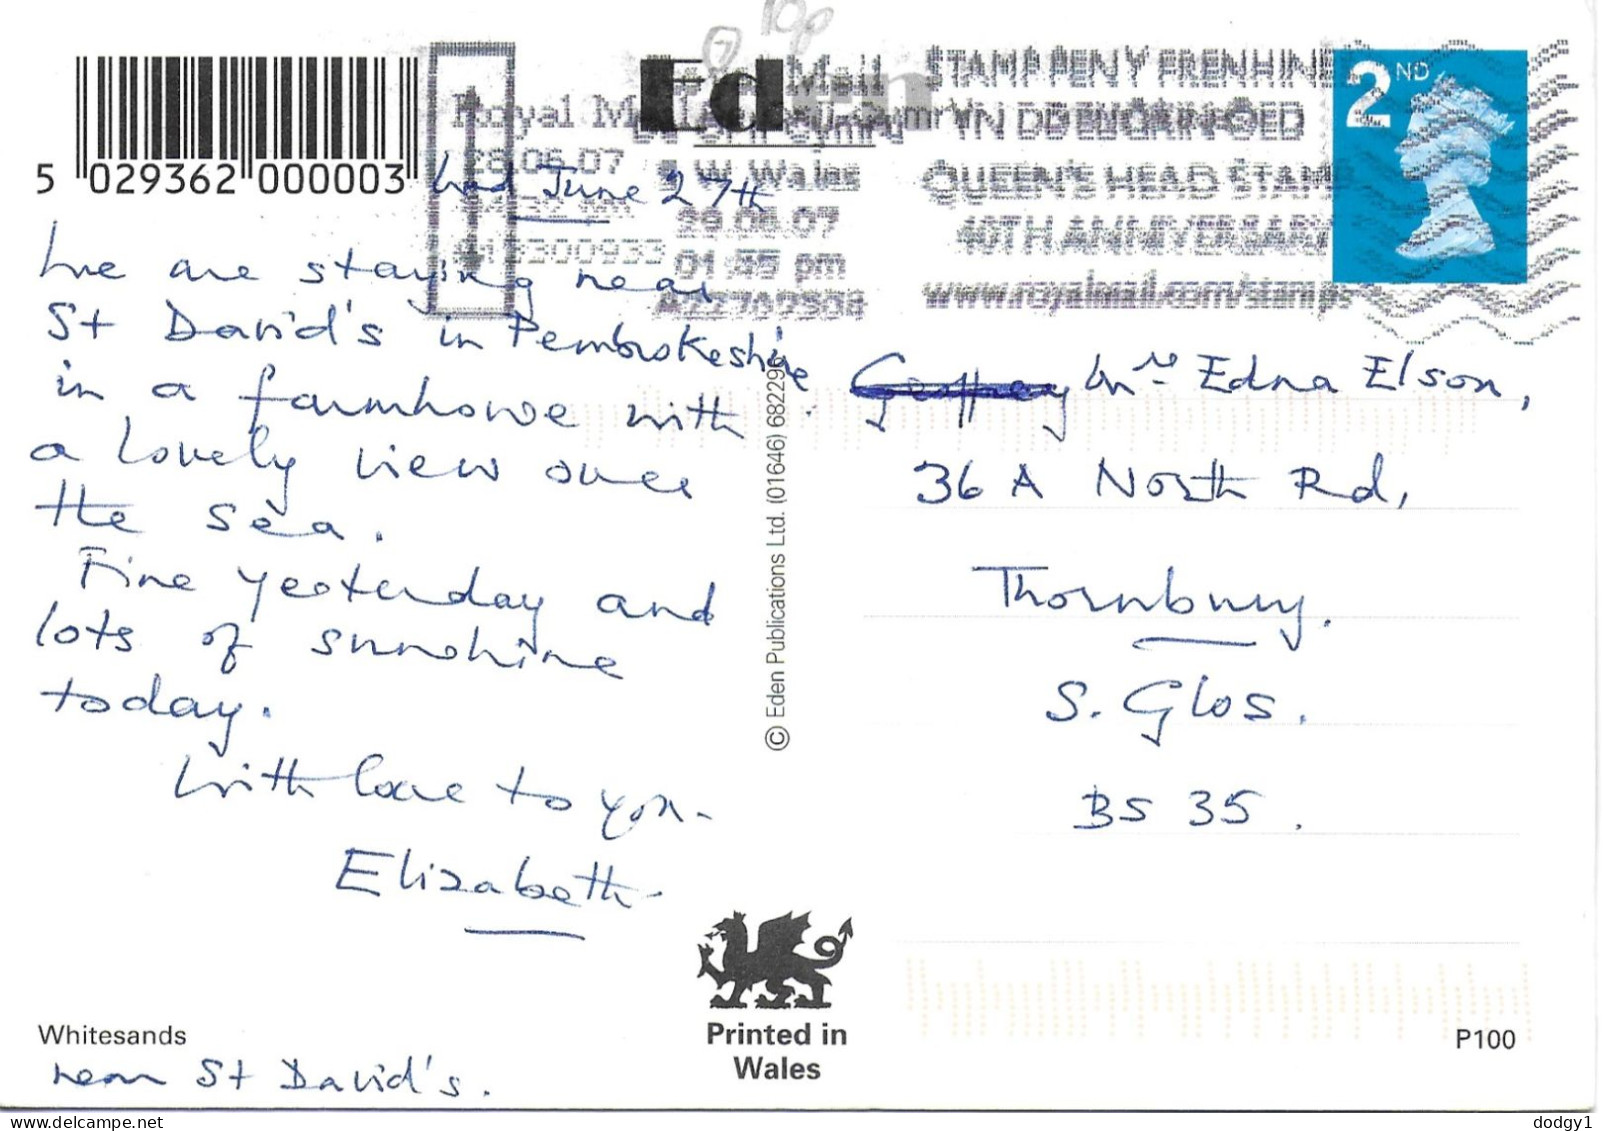 10p
7
Eden
5 029362 000003
Royal Mail
28.06.07
Royal Mail
S W Wales
28.06.07
01:55 pm
STAMP PEN Y FRENHINES
YN DDEUGAIN OED
QUEEN'S HEAD STAMP
40TH ANNIVERSARY
www.royalmail.com/stamps
2ND
Wed June 27th
We are staying near
St David's in Pembrokeshire
in a farmhouse with
a lovely view over
the sea.
Fine yesterday and
lots of sunshine
today.
With love to you.
Elizabeth
Whitesands
near St David's.
© Eden Publications Ltd. (01646) 682296
Geoffrey Mrs Edna Elson,
36 A North Rd,
Thornbury.
S. Glos.
BS 35.
Printed in
Wales
P100
dodgy1